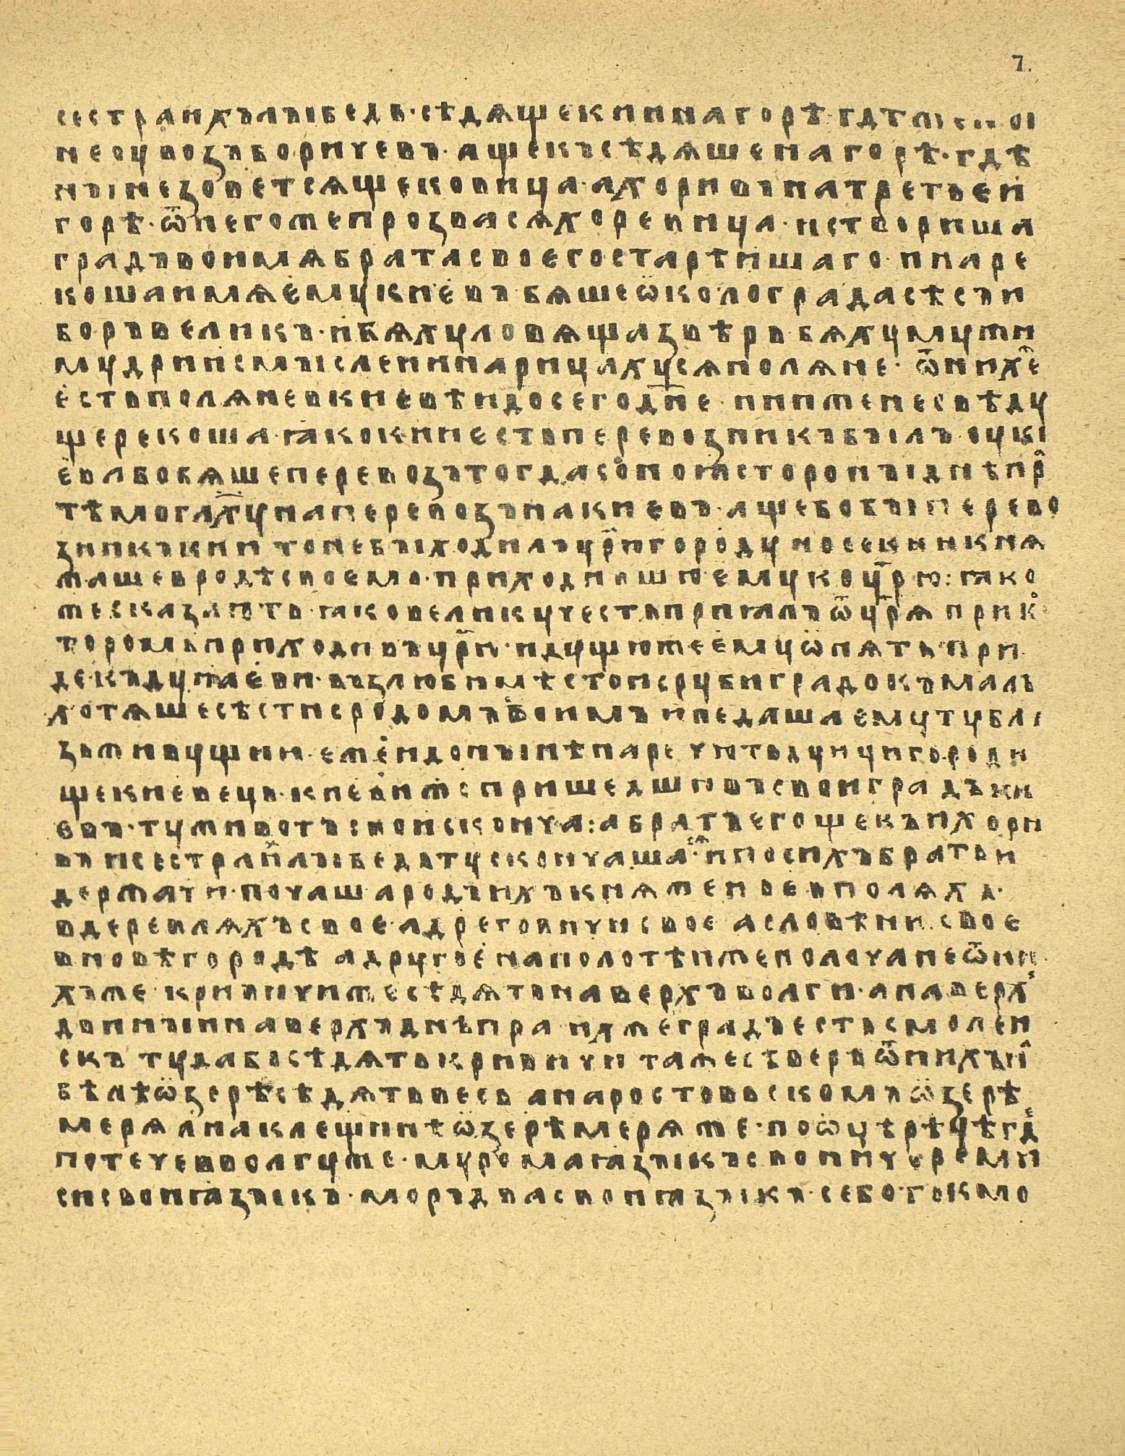 7.
сестра ихъ лыбедь · сѣдяше кии на горѣ гдѣ
не оувозъ боричевъ · а щекъ сѣдяше на горѣ · гдѣ
нынѣ зоветсѧ щековица · а хоривъ на третьеи
горѣ · ѿ негоже прозвасѧ хоревица · и створиша
градъ во имѧ брата своего старѣишаго · и наре
коша имѧ ему киевъ · бяше ѡколо града лѣсъ и
боръ великъ · и бѧху ловяща звѣрь бѧху мужи
мудри и смыслени нарицахусѧ полѧне · ѿ нихже
есть полѧне в киевѣ и до сего дн҃е · ини же не свѣду
ще рекоша · ꙗко кии есть перевозникъ былъ · оу ки
ева бо бѧше перевозъ тогда с оноꙗ стороны днѣпр
тѣмо гл҃аху на перевозъ на киевъ · аще бо бы перево
зникъ кии то не бы ходилъ цр҃югороду но се кии кнѧ
жаше в родѣ своемо · приходившю ему ко цр҃ю : ꙗко
же сказають ꙗко велику честь приꙗлъ ѿ цр҃ѧ при к
торомь приходивъ цр҃и · идущюже ему ѡпѧть при
де къ дунаеви · възлюби мѣсто и сруби градокъ малъ
хотѧше сѣсти с родомъ своимъ и не даша ему ту бли
зь живущии · еже и донынѣ наречють дунаици городи
ще киевець · киеви же пришедшю въ свои градъ ки
евъ · ту животъ свои сконча : а братъ его щекъ и хори
въ и сестра ихъ лыбедь ту скончашасѧ · и по сихъ братьи
держати · почаша родъ ихъ кнѧженье в полѧхъ ·
в деревлѧхъ свое · а дреговичи свое а словѣни свое
в новѣгородѣ а другое на полотѣ иже полочане ѿ ни
хъже кривичи же сѣдѧть на верхъ волги · а на верхъ
двины и на верхъ днѣпра ихже градъ есть смолен
скъ туда бо сѣдѧть кривичи таже сѣверъ ѿ нихъ н
бѣлѣѡзерѣ сѣдѧть весь а на ростовьскомъ ѡзерѣ
мерѧ а на клещинѣ ѡзерѣ мерѧ же · по ѡцѣ рѣцѣ гдѣ
потече в волгу же · мурома ꙗзыкъ свои и черемі
си свои ꙗзыкъ · моръдва свои ꙗзыкъ · се бо токмо